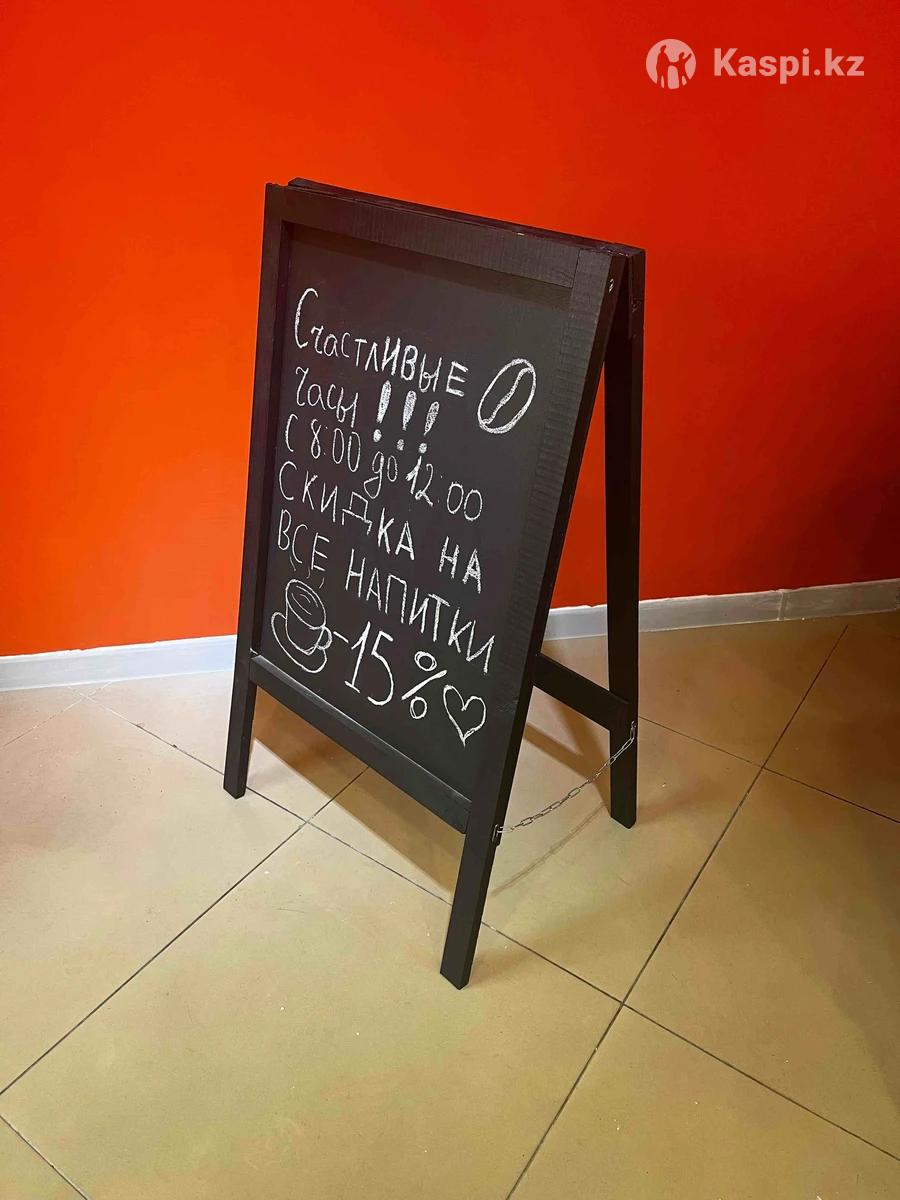 Kaspi.kz
Счастливые
часы !!!
С 8:00 до 12:00
СКИДКА НА
ВСЕ НАПИТКИ
-15%